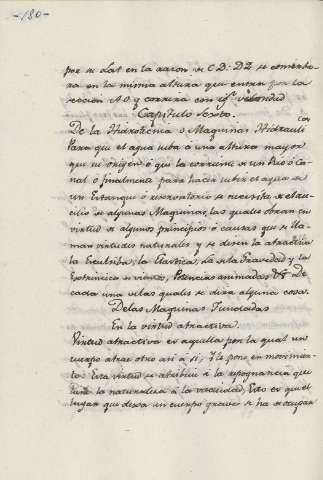 -180-
por se Las en la razon de C D: DZ se comerba-
ra en la misma altura que entra por la
seccion AO y correra con igl. velocidad
Capitulo Sexto.
De la Hidrotecnia o Maquinas Hidrauli
cas
Para que el agua suba a una altura mayor
que su origen ó que la corriente de un Rio ó Ca-
nal ó finalmente para hacer subir el agua de
un Estanque ó reservatorio se necesita el au-
cilio de algunas Maquinas, las quales obran en
virtud de algunos principios ó causas que se lla-
man virtudes naturales y se dicen la atractiva
la Expulsiba, la Elastica, la de la Gravedad y la
Extrinsica de vientos, Potencias animadas &c De
cada una de las quales se dira alguna cosa.
De las Maquinas Fundadas
En la virtud atractiva.
Virtud atractiva es aquella por la qual un
cuerpo atrae otro asi a si, y le pone en movimien-
to. Esta virtud se atribuie á la repognancia que
tiene la naturaleza á la vacuidad, Esto es que el
lugar que dexa un cuerpo grave se ha de ocupar